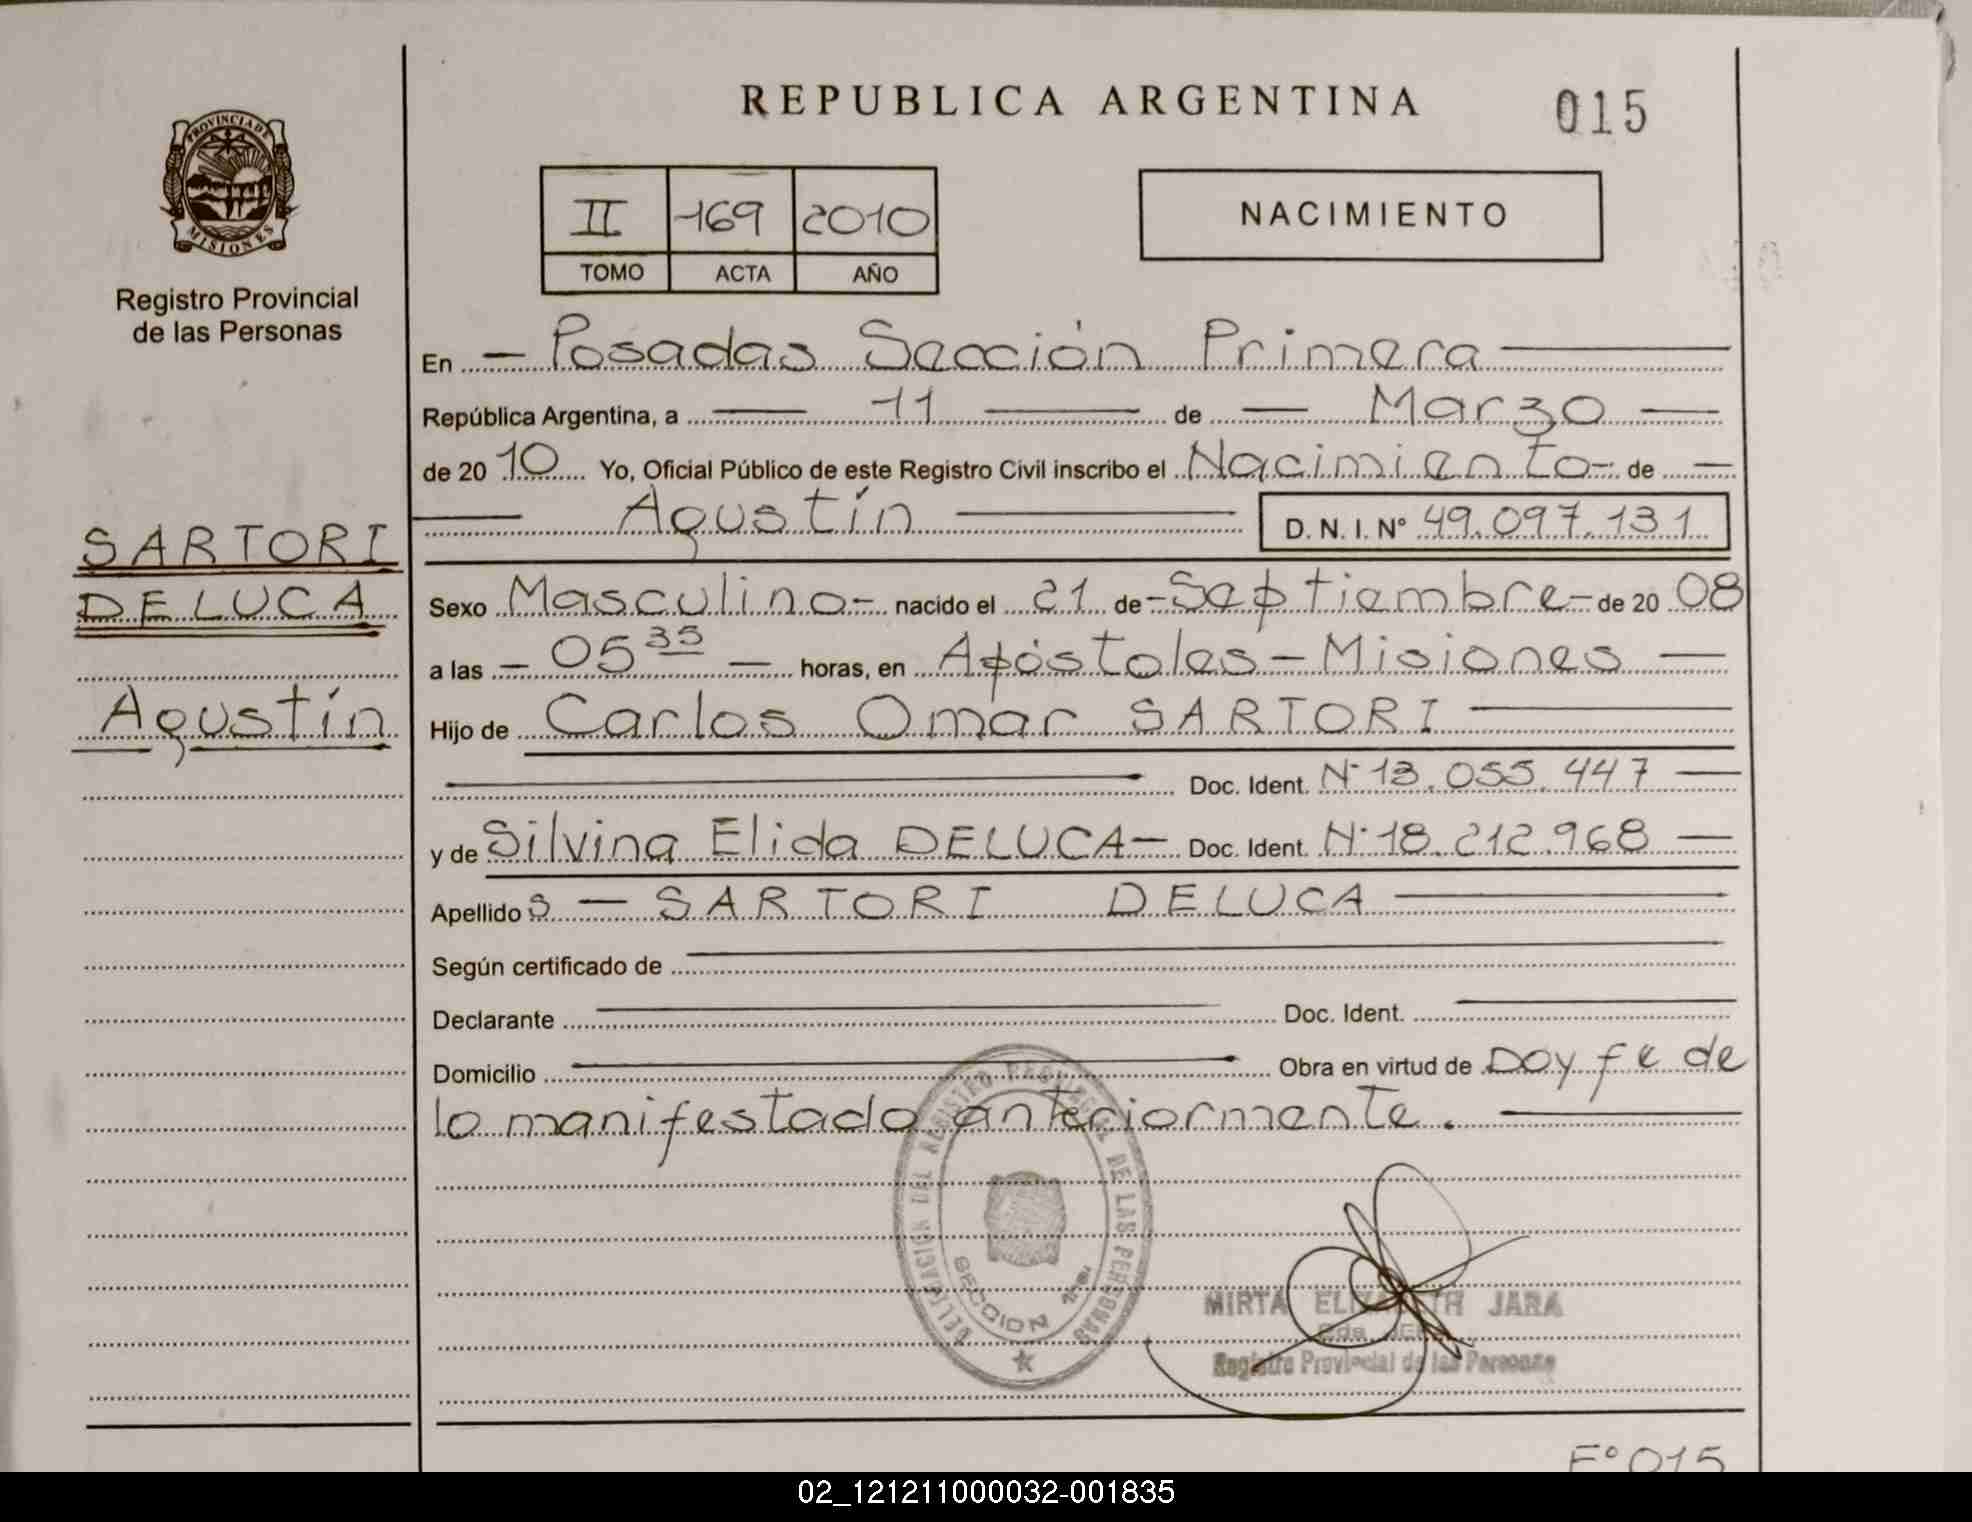 REPUBLICA ARGENTINA
015
PROVINCIA DE
MISIONES
Registro Provincial
de las Personas
II 169 2010
TOMO ACTA AÑO
NACIMIENTO
En Posadas Sección Primera
República Argentina, a 11 de Marzo
de 20 10 Yo, Oficial Público de este Registro Civil inscribo el Nacimiento de
Agustín D. N. I. Nº 49.097.131
SARTORI
DELUCA
Agustín
Sexo Masculino nacido el 21 de Septiembre de 20 08
a las 05 35 horas, en Apóstoles - Misiones
Hijo de Carlos Omar SARTORI
Doc. Ident. Nº 13.055.447
y de Silvina Elida DELUCA Doc. Ident. Nº 18.212.968
Apellido s SARTORI DELUCA
Según certificado de
Declarante Doc. Ident.
Domicilio Obra en virtud de Doy fe de
lo manifestado anteriormente.
DELEGACION DEL REGISTRO PROVINCIAL DE LAS PERSONAS
SECCION 1ra
MIRTA ELIZABETH JARA
Registro Provincial de las Personas
Fº 015
02_121211000032-001835